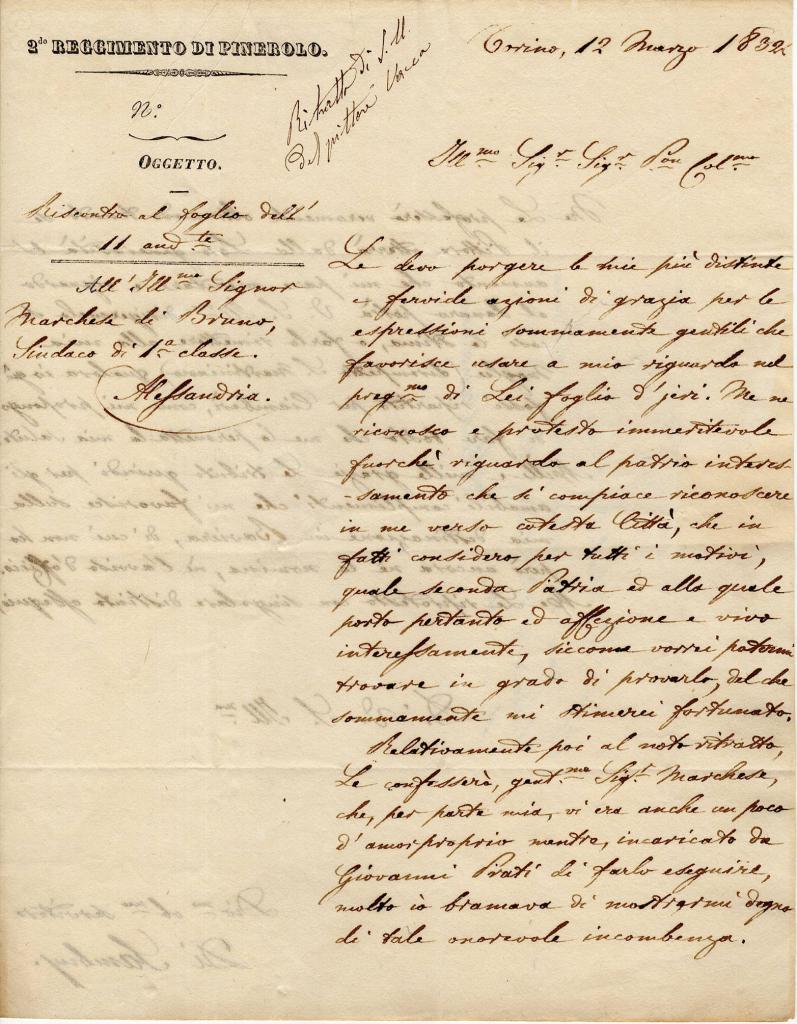 2do REGGIMENTO DI PINEROLO.
N.o
OGGETTO.
Riscontro al foglio dell'
11 andte
All' Illmo Signor
Marchese di Bruno,
Sindaco di 1a classe.
Alessandria.
Ritratto di S. M.
del pittore Vacca
Torino, 12 Marzo 1832
Illmo Sigr Sigr Pon Colmo
Le devo porgere le mie più distinte
e fervide azioni di grazia per le
espressioni sommamente gentili che
favorisce usare a mio riguardo nel
pregmo di Lei foglio d'jeri. Me ne
riconosco e protesto immeritevole
fuorchè riguardo al patrio interes-
-samento che si compiace riconoscere
in me verso cotesta Città, che in
fatti considero per tutti i motivi,
quale seconda Patria ed alla quale
porto pertanto ed affezione e vivo
interessamente, siccome vorrei potermi
trovare in grado di provarlo, del che
sommamente mi stimerei fortunato.
Relativamente poi al noto ritratto,
Le confesserò, gentmo Sigr Marchese,
che, per parte mia, vi era anche un poco
d'amorproprio mentre, incaricato da
Giovanni Prati di farlo eseguire,
molto io bramava di mostrarmi degno
di tale onorevole incombenza.